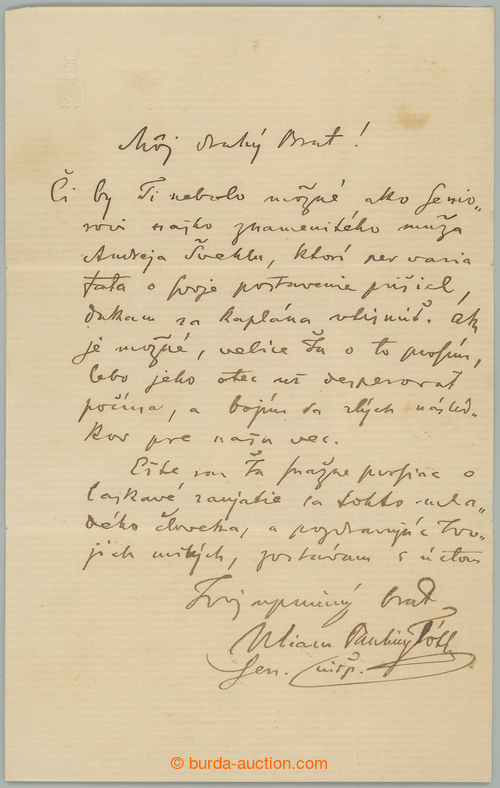 Môj drahý Brat!
Či by Ti nebolo možné ako Senio„
rovi našho znamenitého muža
Andreja Švehlu, ktorí per varia
fata o svoje postavenie prišiel,
dakam za kaplána vtisnúť. Ak
je možné, velice Ťa o to prosím,
lebo jeho otec už desperovať
počína, a bojím sa zlých násled„
kov pre našu vec.
Ešte raz Ťa snažne prosiac o
laskavé zaujatie sa tohto mla„
dého človeka, a pozdravujúc Tvo„
jich milých, zostávam s úctou
Tvoj úprimný brat
Viliam Pauliny Tóth
Sen.
© burda-auction.com